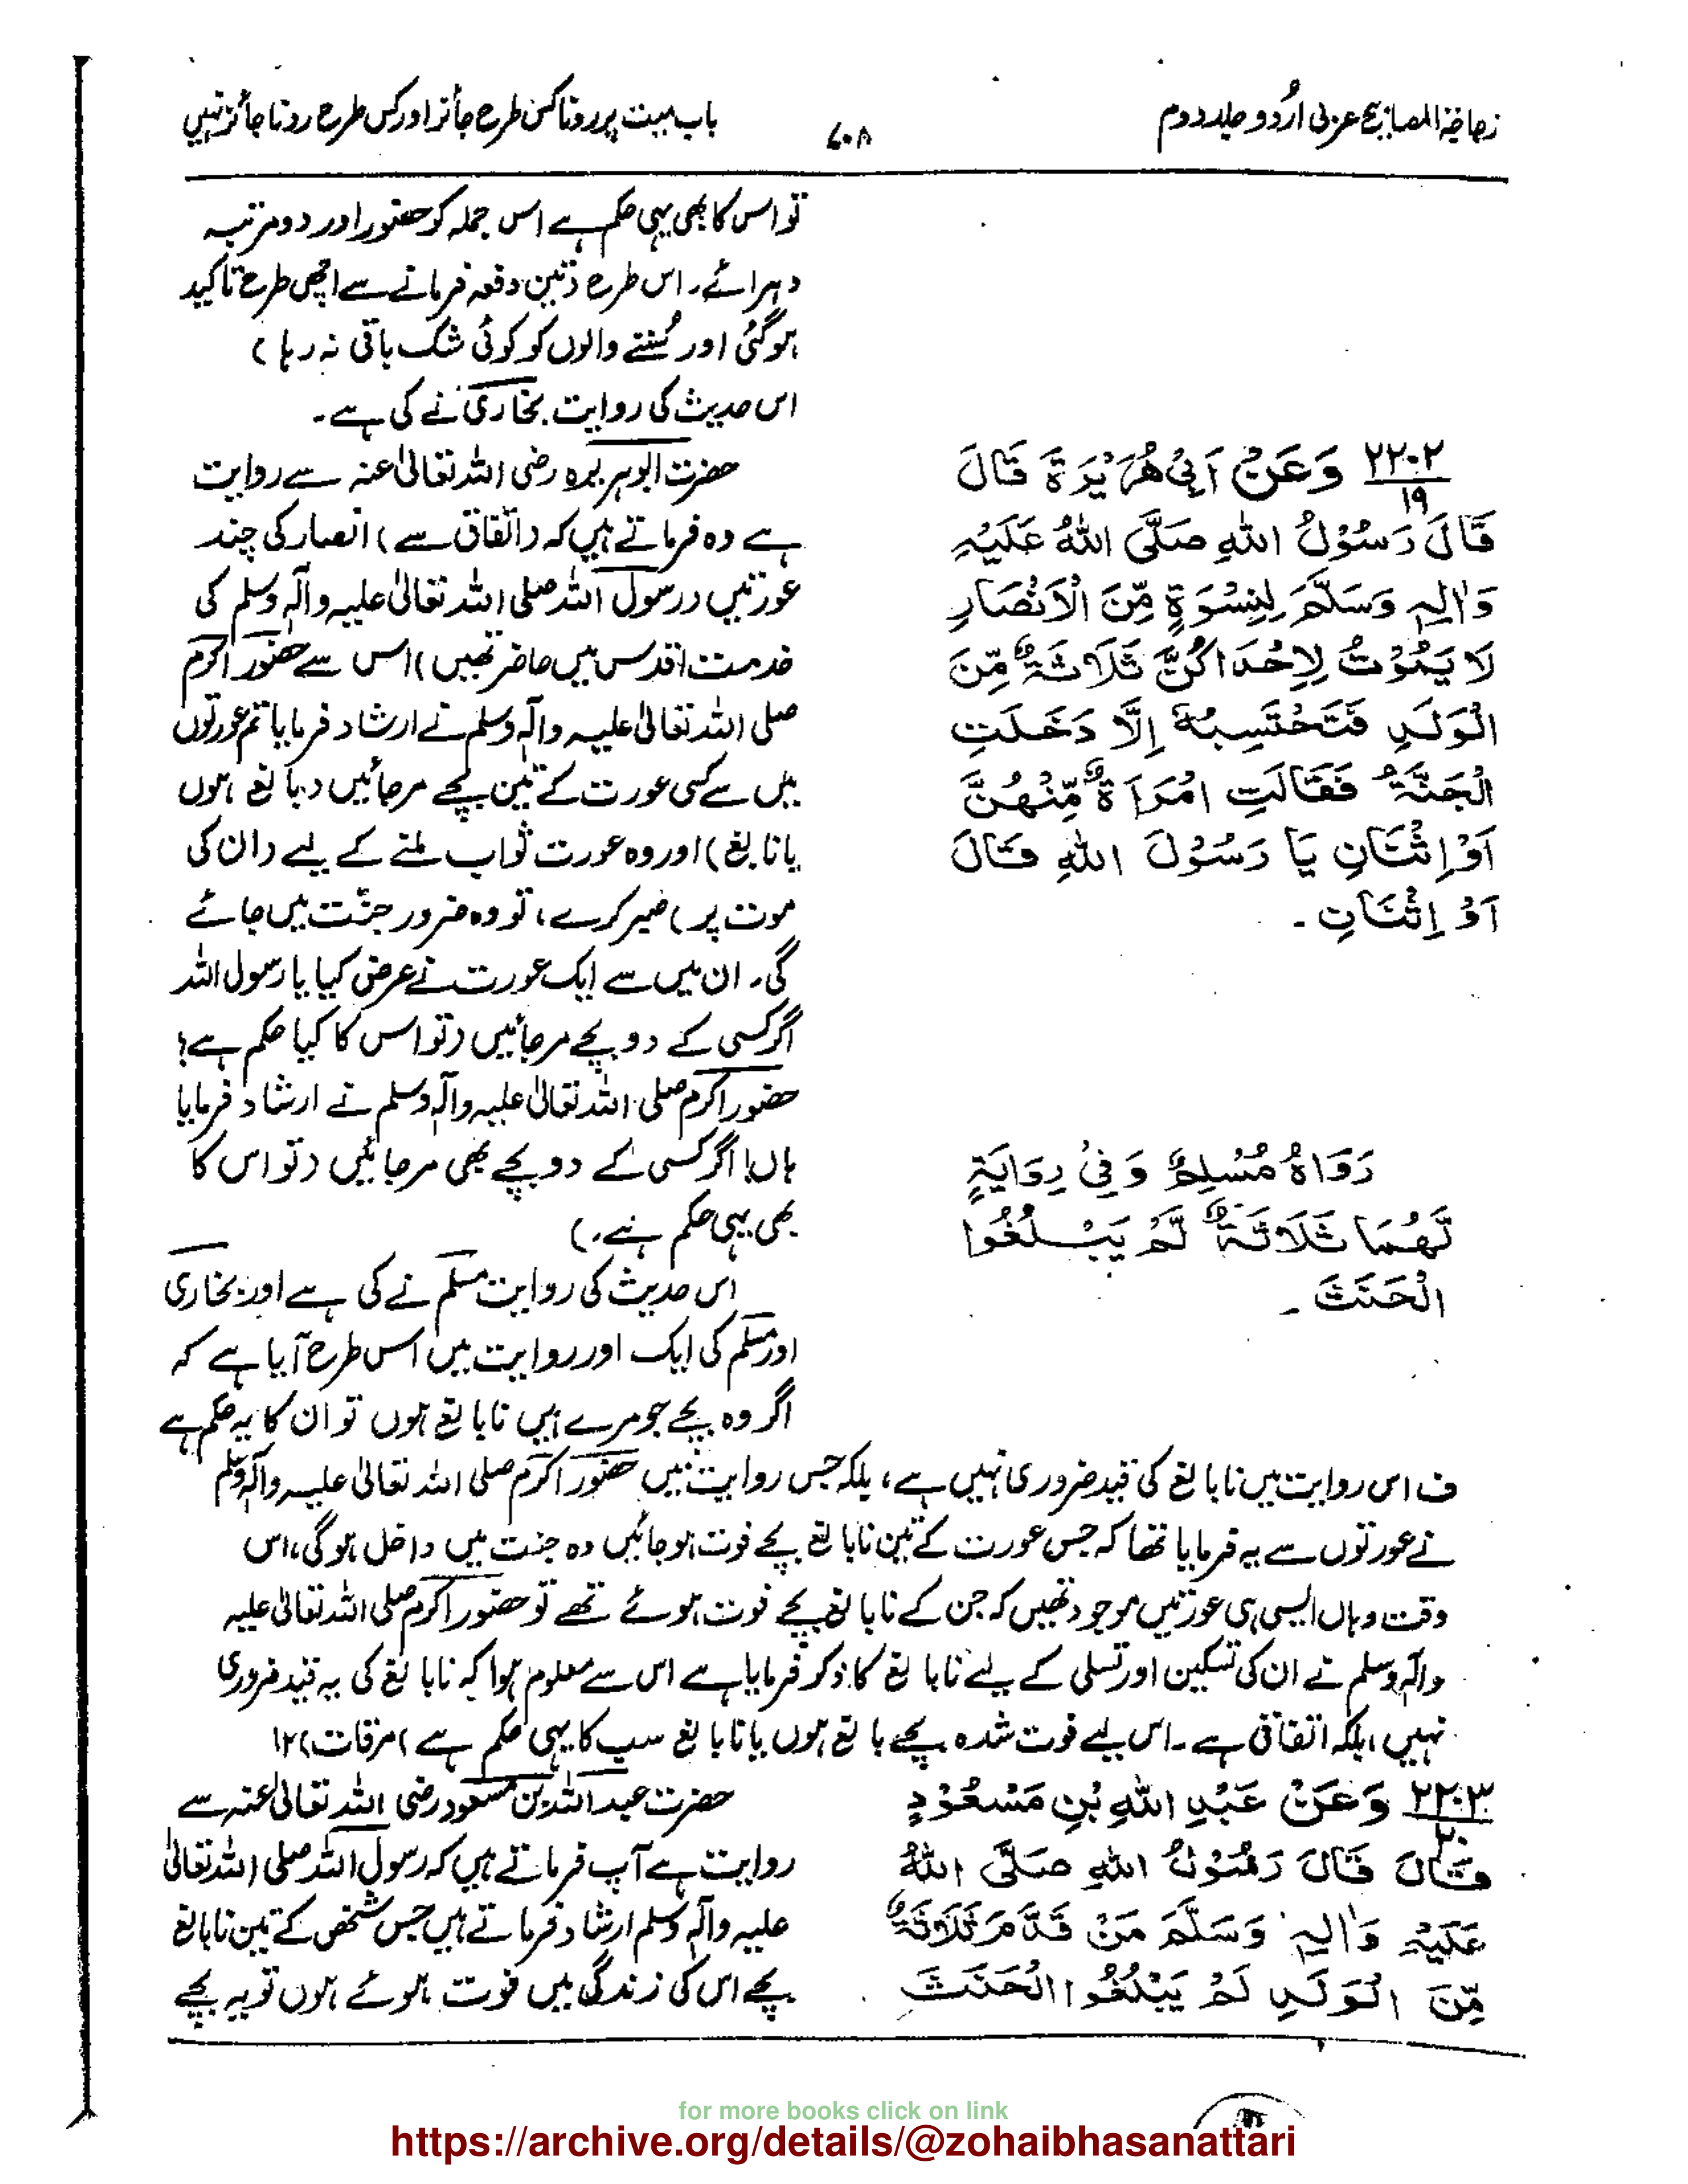 زجاجۃ المصابیح عربی اُردو جلد دوم
۷۰۸
باب میت پر رونا کس طرح جائز اور کس طرح رونا جائز نہیں
تو اس کا بھی یہی حکم ہے اس جملہ کو حضور اور دو مرتبہ
دہرائے۔ اس طرح (تین دفعہ فرمانے سے اچھی طرح تاکید
ہوگئی اور سُننے والوں کو کوئی شک باقی نہ رہا)
اس حدیث کی روایت بخاری نے کی ہے۔
۲۲۰۲ وَعَنْ اَبِیْ ھُرَیْرَۃَ قَالَ
۱۹
قَالَ رَسُوْلُ اللہِ صَلَّی اللہُ عَلَیْہِ
وَاٰلِہٖ وَسَلَّمَ لِنِسْوَۃٍ مِّنَ الْاَنْصَارِ
لَا یَمُوْتُ لِاِحْدَاکُنَّ ثَلَاثَۃٌ مِّنَ
الْوَلَدِ فَتَحْتَسِبُہٗ اِلَّا دَخَلَتِ
الْجَنَّۃَ فَقَالَتِ امْرَاَۃٌ مِّنْھُنَّ
اَوْ اِثْنَانِ یَا رَسُوْلَ اللہِ قَالَ
اَوْ اِثْنَانِ ۔
رَوَاہُ مُسْلِمٌ وَفِیْ رِوَایَۃٍ
لَّھُمَا ثَلَاثَۃٌ لَّمْ یَبْلُغُوا
الْحَنَثَ ۔
حضرت ابوہریرہ رضی اللہ تعالیٰ عنہ سے روایت
ہے وہ فرماتے ہیں کہ (اتفاق سے) انصار کی چند
عورتیں (رسول اللہ صلی اللہ تعالیٰ علیہ وآلہٖ وسلم کی
خدمت اقدس میں حاضر تھیں) اس سے حضور اکرم
صلی اللہ تعالیٰ علیہ وآلہٖ وسلم نے ارشاد فرمایا تم عورتوں
میں سے کسی عورت کے تین بچے مرجائیں (بالغ ہوں
یا نابالغ) اور وہ عورت ثواب ملنے کے لیے (ان کی
موت پر) صبر کرے، تو وہ ضرور جنّت میں جائے
گی۔ ان میں سے ایک عورت نے عرض کیا یا رسول اللہ
اگر کسی کے دو بچے مرجائیں (تو اس کا کیا حکم ہے!
حضور اکرم صلی اللہ تعالیٰ علیہ وآلہٖ وسلم نے ارشاد فرمایا
ہاں! اگر کسی کے دو بچے بھی مرجائیں (تو اس کا
بھی یہی حکم ہے۔)
اس حدیث کی روایت مسلم نے کی ہے اور بخاری
اور مسلم کی ایک اور روایت میں اس طرح آیا ہے کہ
اگر وہ بچے جو مرے ہیں نابالغ ہوں تو ان کا یہ حکم ہے
ف اس روایت میں نابالغ کی قید ضروری نہیں ہے، بلکہ جس روایت میں حضور اکرم صلی اللہ تعالیٰ علیہ وآلہٖ وسلم
نے عورتوں سے یہ فرمایا تھا کہ جس عورت کے تین نابالغ بچے فوت ہوجائیں وہ جنت میں داخل ہوگی، اس
وقت وہاں ایسی ہی عورتیں موجود تھیں کہ جن کے نابالغ بچے فوت ہوئے تھے تو حضور اکرم صلی اللہ تعالیٰ علیہ
وآلہٖ وسلم نے ان کی تسکین اور تسلی کے لیے نابالغ کا ذکر فرمایا ہے اس سے معلوم ہوا کہ نابالغ کی یہ قید ضروری
نہیں، بلکہ اتفاقی ہے۔ اس لیے فوت شدہ بچے بالغ ہوں یا نابالغ سب کا یہی حکم ہے (مرقات) ۱۲
۲۲۰۳ وَعَنْ عَبْدِ اللہِ بْنِ مَسْعُوْدٍ
۲۰
قَالَ قَالَ رَسُوْلُ اللہِ صَلَّی اللہُ
عَلَیْہِ وَاٰلِہٖ وَسَلَّمَ مَنْ قَدَّمَ ثَلَاثَۃً
مِّنَ الْوَلَدِ لَمْ یَبْلُغُوا الْحَنَثَ
حضرت عبد اللہ بن مسعود رضی اللہ تعالیٰ عنہ سے
روایت ہے آپ فرماتے ہیں کہ رسول اللہ صلی اللہ تعالیٰ
علیہ وآلہٖ وسلم ارشاد فرماتے ہیں جس شخص کے تین نابالغ
بچے اس کی زندگی میں فوت ہوئے ہوں تو یہ بچے
for more books click on link
https://archive.org/details/@zohaibhasanattari